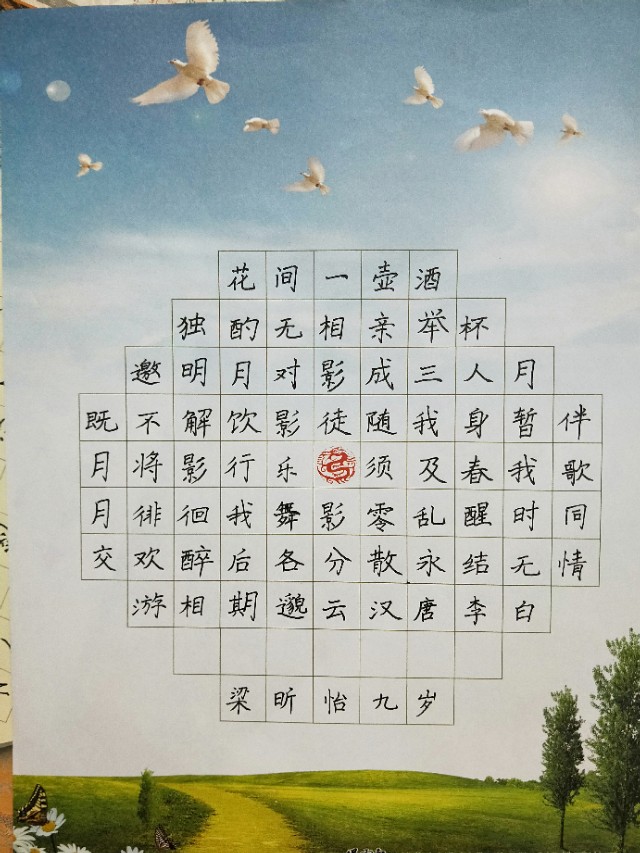 花间一壶酒
独酌无相亲举杯
邀明月对影成三人月
既不解饮影徒随我身暂伴
月将影行乐须及春我歌
月徘徊我舞影零乱醒时同
交欢醉后各分散永结无情
游相期邈云汉唐李白
梁昕怡九岁